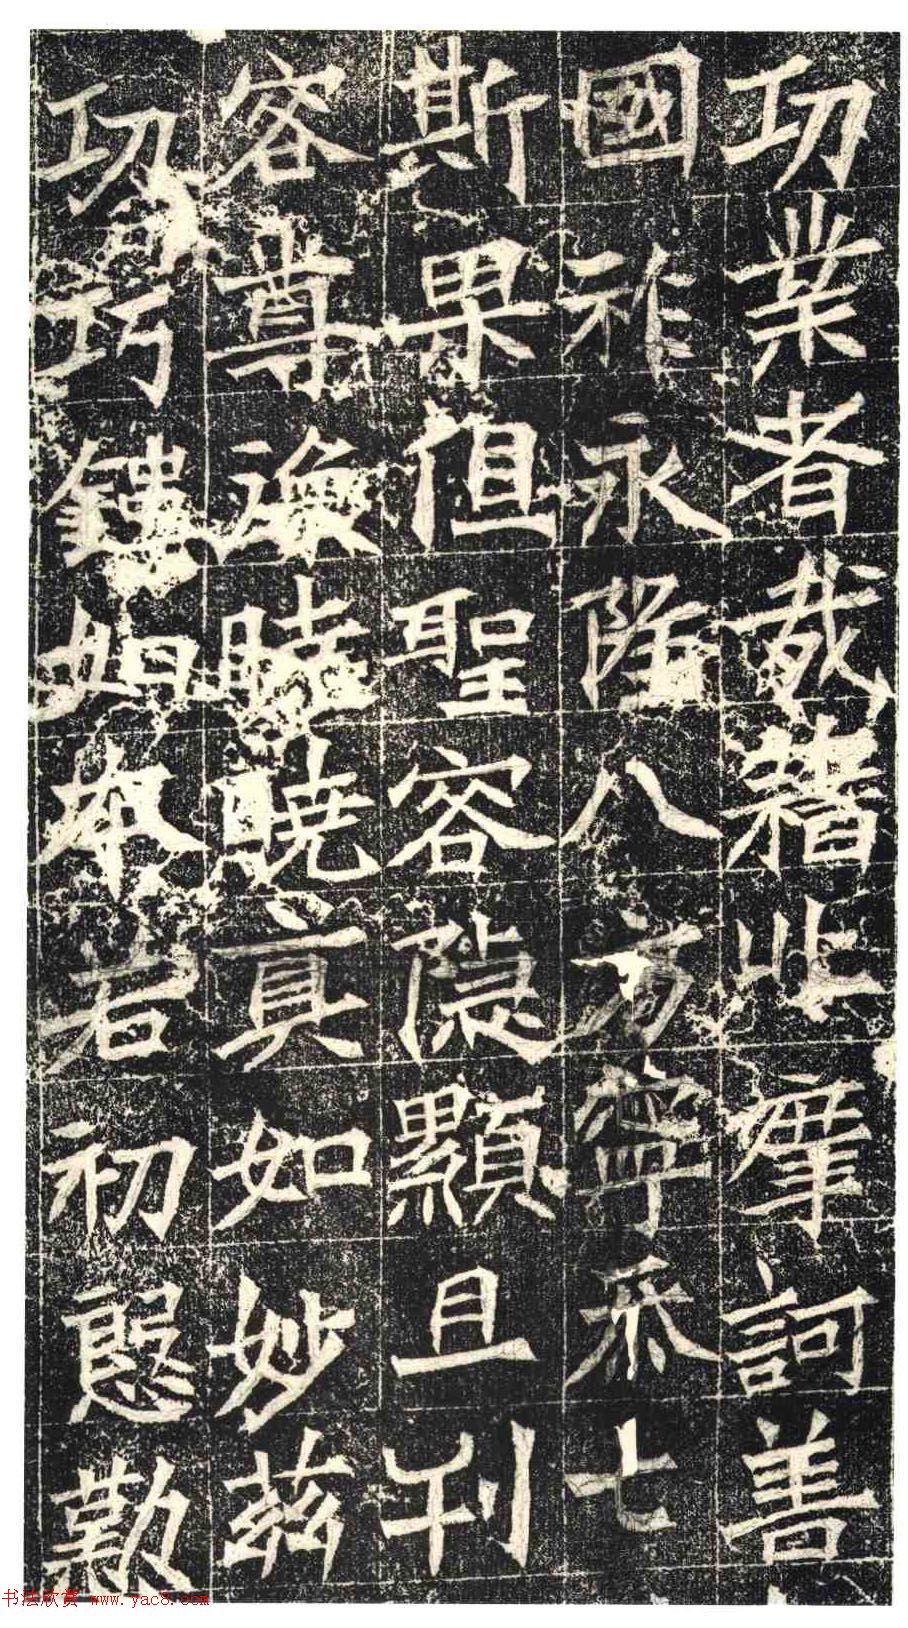 功業者哉藉此摩訶善
國祚永隆八方寧七
斯果但聖容隱顯且刊
容尊渙曉曉真如妙茲
功巧鏤如本若初慇懃
书法欣赏 www.yac8.com